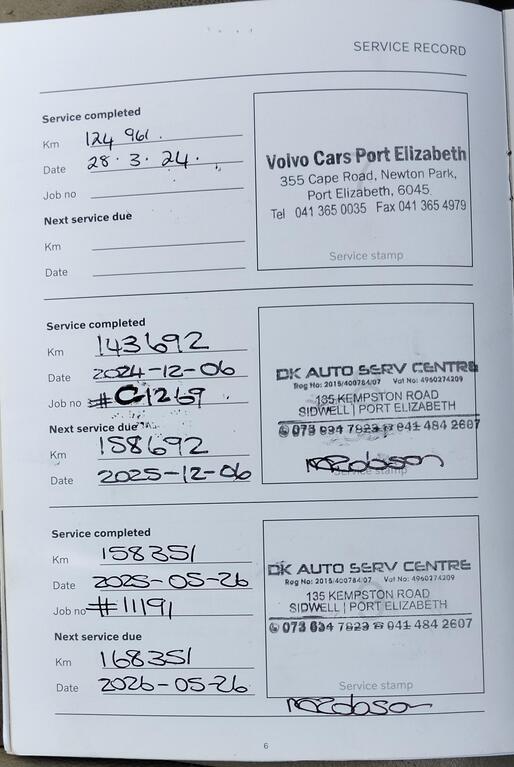 SERVICE RECORD
Service completed
Km 124 961.
Date 28.3.24.
Job no
Next service due
Km
Date
Volvo Cars Port Elizabeth
355 Cape Road, Newton Park,
Port Elizabeth, 6045.
Tel 041 365 0035 Fax 041 365 4979
Service stamp
Service completed
Km 143692
Date 2024-12-06
Job no #C1269
Next service due
Km 158692
Date 2025-12-06
DK AUTO SERV CENTRE
Reg No: 2015/400784/07 Vat No: 4960274209
135 KEMPSTON ROAD
SIDWELL | PORT ELIZABETH
073 634 7823 041 484 2607
Service stamp
Service completed
Km 158351
Date 2025-05-26
Job no #11191
Next service due
Km 168351
Date 2026-05-26
DK AUTO SERV CENTRE
Reg No: 2015/400784/07 Vat No: 4960274209
135 KEMPSTON ROAD
SIDWELL | PORT ELIZABETH
073 634 7823 041 484 2607
Service stamp
6